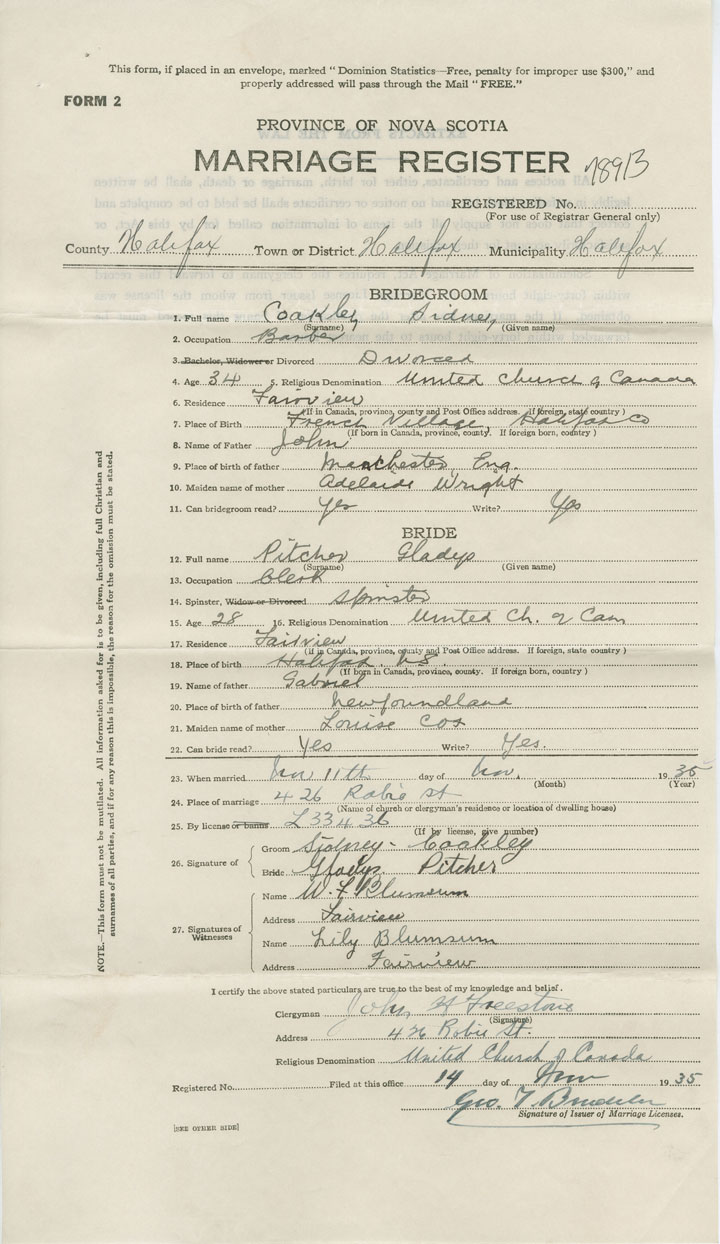 This form, if placed in an envelope, marked "Dominion Statistics—Free, penalty for improper use $300," and
properly addressed will pass through the Mail "FREE."
FORM 2
PROVINCE OF NOVA SCOTIA
MARRIAGE REGISTER
REGISTERED No.
(For use of Registrar General only)
County Halifax Town or District Halifax Municipality Halifax
BRIDEGROOM
1. Full name Coakley Sidney
(Surname) (Given name)
2. Occupation Barber
3. Bachelor, Widower or Divorced Divorced
4. Age 34 5. Religious Denomination United Church of Canada
6. Residence Fairview
(If in Canada, province, county and Post Office address. If foreign, state country)
7. Place of Birth French Village, Halifax Co
(If born in Canada, province, county. If foreign born, country)
8. Name of Father John
9. Place of birth of father Manchester Eng.
10. Maiden name of mother Adelaide Wright
11. Can bridegroom read? Yes Write? Yes
BRIDE
12. Full name Pitcher Gladys
(Surname) (Given name)
13. Occupation Clerk
14. Spinster, Widow or Divorced Spinster
15. Age 28 16. Religious Denomination United Ch. of Can
17. Residence Fairview
(If in Canada, province, county and Post Office address. If foreign, state country)
18. Place of birth Halifax N.S.
(If born in Canada, province, county. If foreign born, country)
19. Name of father Gabriel
20. Place of birth of father Newfoundland
21. Maiden name of mother Louise Cox
22. Can bride read? Yes Write? Yes.
23. When married Nov 11th day of Nov. 1935
(Month) (Year)
24. Place of marriage 426 Robie St
(Name of church or clergyman's residence or location of dwelling house)
25. By license or banns L33436
(If by license, give number)
26. Signature of
Groom Sidney - Coakley
Bride Gladys Pitcher
27. Signatures of Witnesses
Name W. L. Blumsum
Address Fairview
Name Lily Blumsum
Address Fairview
I certify the above stated particulars are true to the best of my knowledge and belief.
Clergyman John H Freestone
(Signature)
Address 426 Robie St.
Religious Denomination United Church of Canada
Registered No. Filed at this office 14 day of Nov 1935
Geo. T.
Signature of Issuer of Marriage Licenses.
[SEE OTHER SIDE]
NOTE.—This form must not be mutilated. All information asked for is to be given, including full Christian and
surnames of all parties, and if for any reason this is impossible, the reason for the omission must be stated.